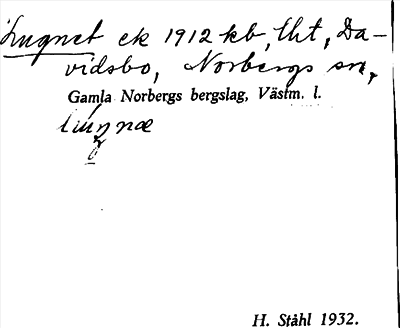 Lugnet ek 1912 kb, tht, Da-
vidsbo, Norbergs sn,
Gamla Norbergs bergslag, Västm. l.
H. Ståhl 1932.